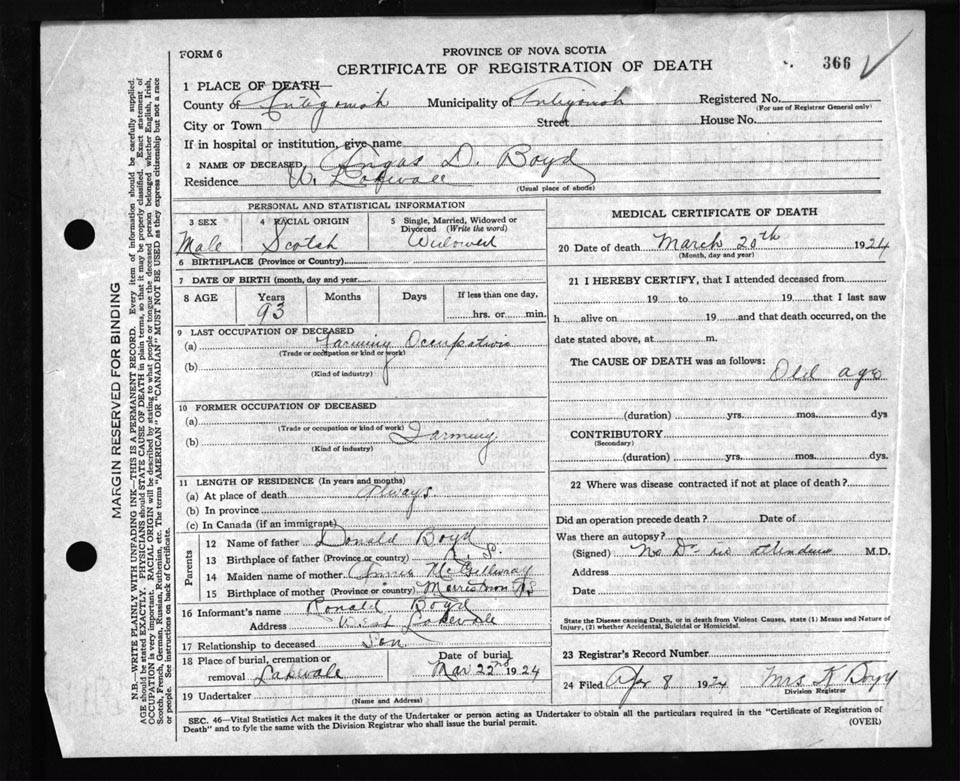 FORM 6
PROVINCE OF NOVA SCOTIA
CERTIFICATE OF REGISTRATION OF DEATH
366
1 PLACE OF DEATH—
County of Antigonish Municipality of Antigonish Registered No.
(For use of Registrar General only)
City or Town Street House No.
If in hospital or institution, give name
2 NAME OF DECEASED Angus D. Boyd
Residence W. Lakevale
(Usual place of abode)
PERSONAL AND STATISTICAL INFORMATION
3 SEX
Male
4 RACIAL ORIGIN
Scotch
5 Single, Married, Widowed or
Divorced (Write the word)
Widowed
6 BIRTHPLACE (Province or Country)
7 DATE OF BIRTH (month, day and year
8 AGE Years Months Days If less than one day,
93 hrs. or min.
9 LAST OCCUPATION OF DECEASED
(a) Farming Occupation
(Trade or occupation or kind or work)
(b)
(Kind of industry)
10 FORMER OCCUPATION OF DECEASED
(a)
(Trade or occupation or kind of work)
(b) Farming
(Kind of industry)
11 LENGTH OF RESIDENCE (In years and months)
(a) At place of death Always
(b) In province
(c) In Canada (if an immigrant)
Parents
12 Name of father Donald Boyd
13 Birthplace of father (Province or country)
14 Maiden name of mother McGillivray
15 Birthplace of mother (Province or country) Morristown NS
16 Informant's name Ronald Boyd
Address West Lakevale
17 Relationship to deceased Son
18 Place of burial, cremation or
removal Lakevale
Date of burial
Mar 22nd 1924
19 Undertaker
(Name and Address)
MEDICAL CERTIFICATE OF DEATH
20 Date of death March 20th 1924
(Month, day and year)
21 I HEREBY CERTIFY, that I attended deceased from
19 to 19 that I last saw
h alive on 19 and that death occurred, on the
date stated above, at m.
The CAUSE OF DEATH was as follows:
Old age
(duration) yrs. mos. dys
CONTRIBUTORY
(Secondary)
(duration) yrs. mos. dys.
22 Where was disease contracted if not at place of death?
Did an operation precede death? Date of
Was there an autopsy?
(Signed) No Dr in attendance M.D.
Address
Date
State the Disease causing Death, or in death from Violent Causes, state (1) Means and Nature of
Injury, (2) whether Accidental, Suicidal or Homicidal.
23 Registrar's Record Number
24 Filed Apr 8 1924 Mrs K Boyd
Division Registrar
SEC. 46—Vital Statistics Act makes it the duty of the Undertaker or person acting as Undertaker to obtain all the particulars required in the "Certificate of Registration of
Death" and to fyle the same with the Division Registrar who shall issue the burial permit.
(OVER)
MARGIN RESERVED FOR BINDING
N.B.—WRITE PLAINLY WITH UNFADING INK—THIS IS A PERMANENT RECORD. Every item of information should be carefully supplied.
AGE should be stated EXACTLY. PHYSICIANS should STATE CAUSE OF DEATH in plain terms, so that it may be properly classified. Exact statement of
OCCUPATION is very important. RACIAL ORIGIN will be described by stating to what people or tongue the deceased person belonged whether English, Irish,
Scotch, French, German, Russian, Ruthenian, etc. The terms "AMERICAN" OR "CANADIAN" MUST NOT BE USED as they express citizenship but not a race
or people. See instructions on back of Certificate.